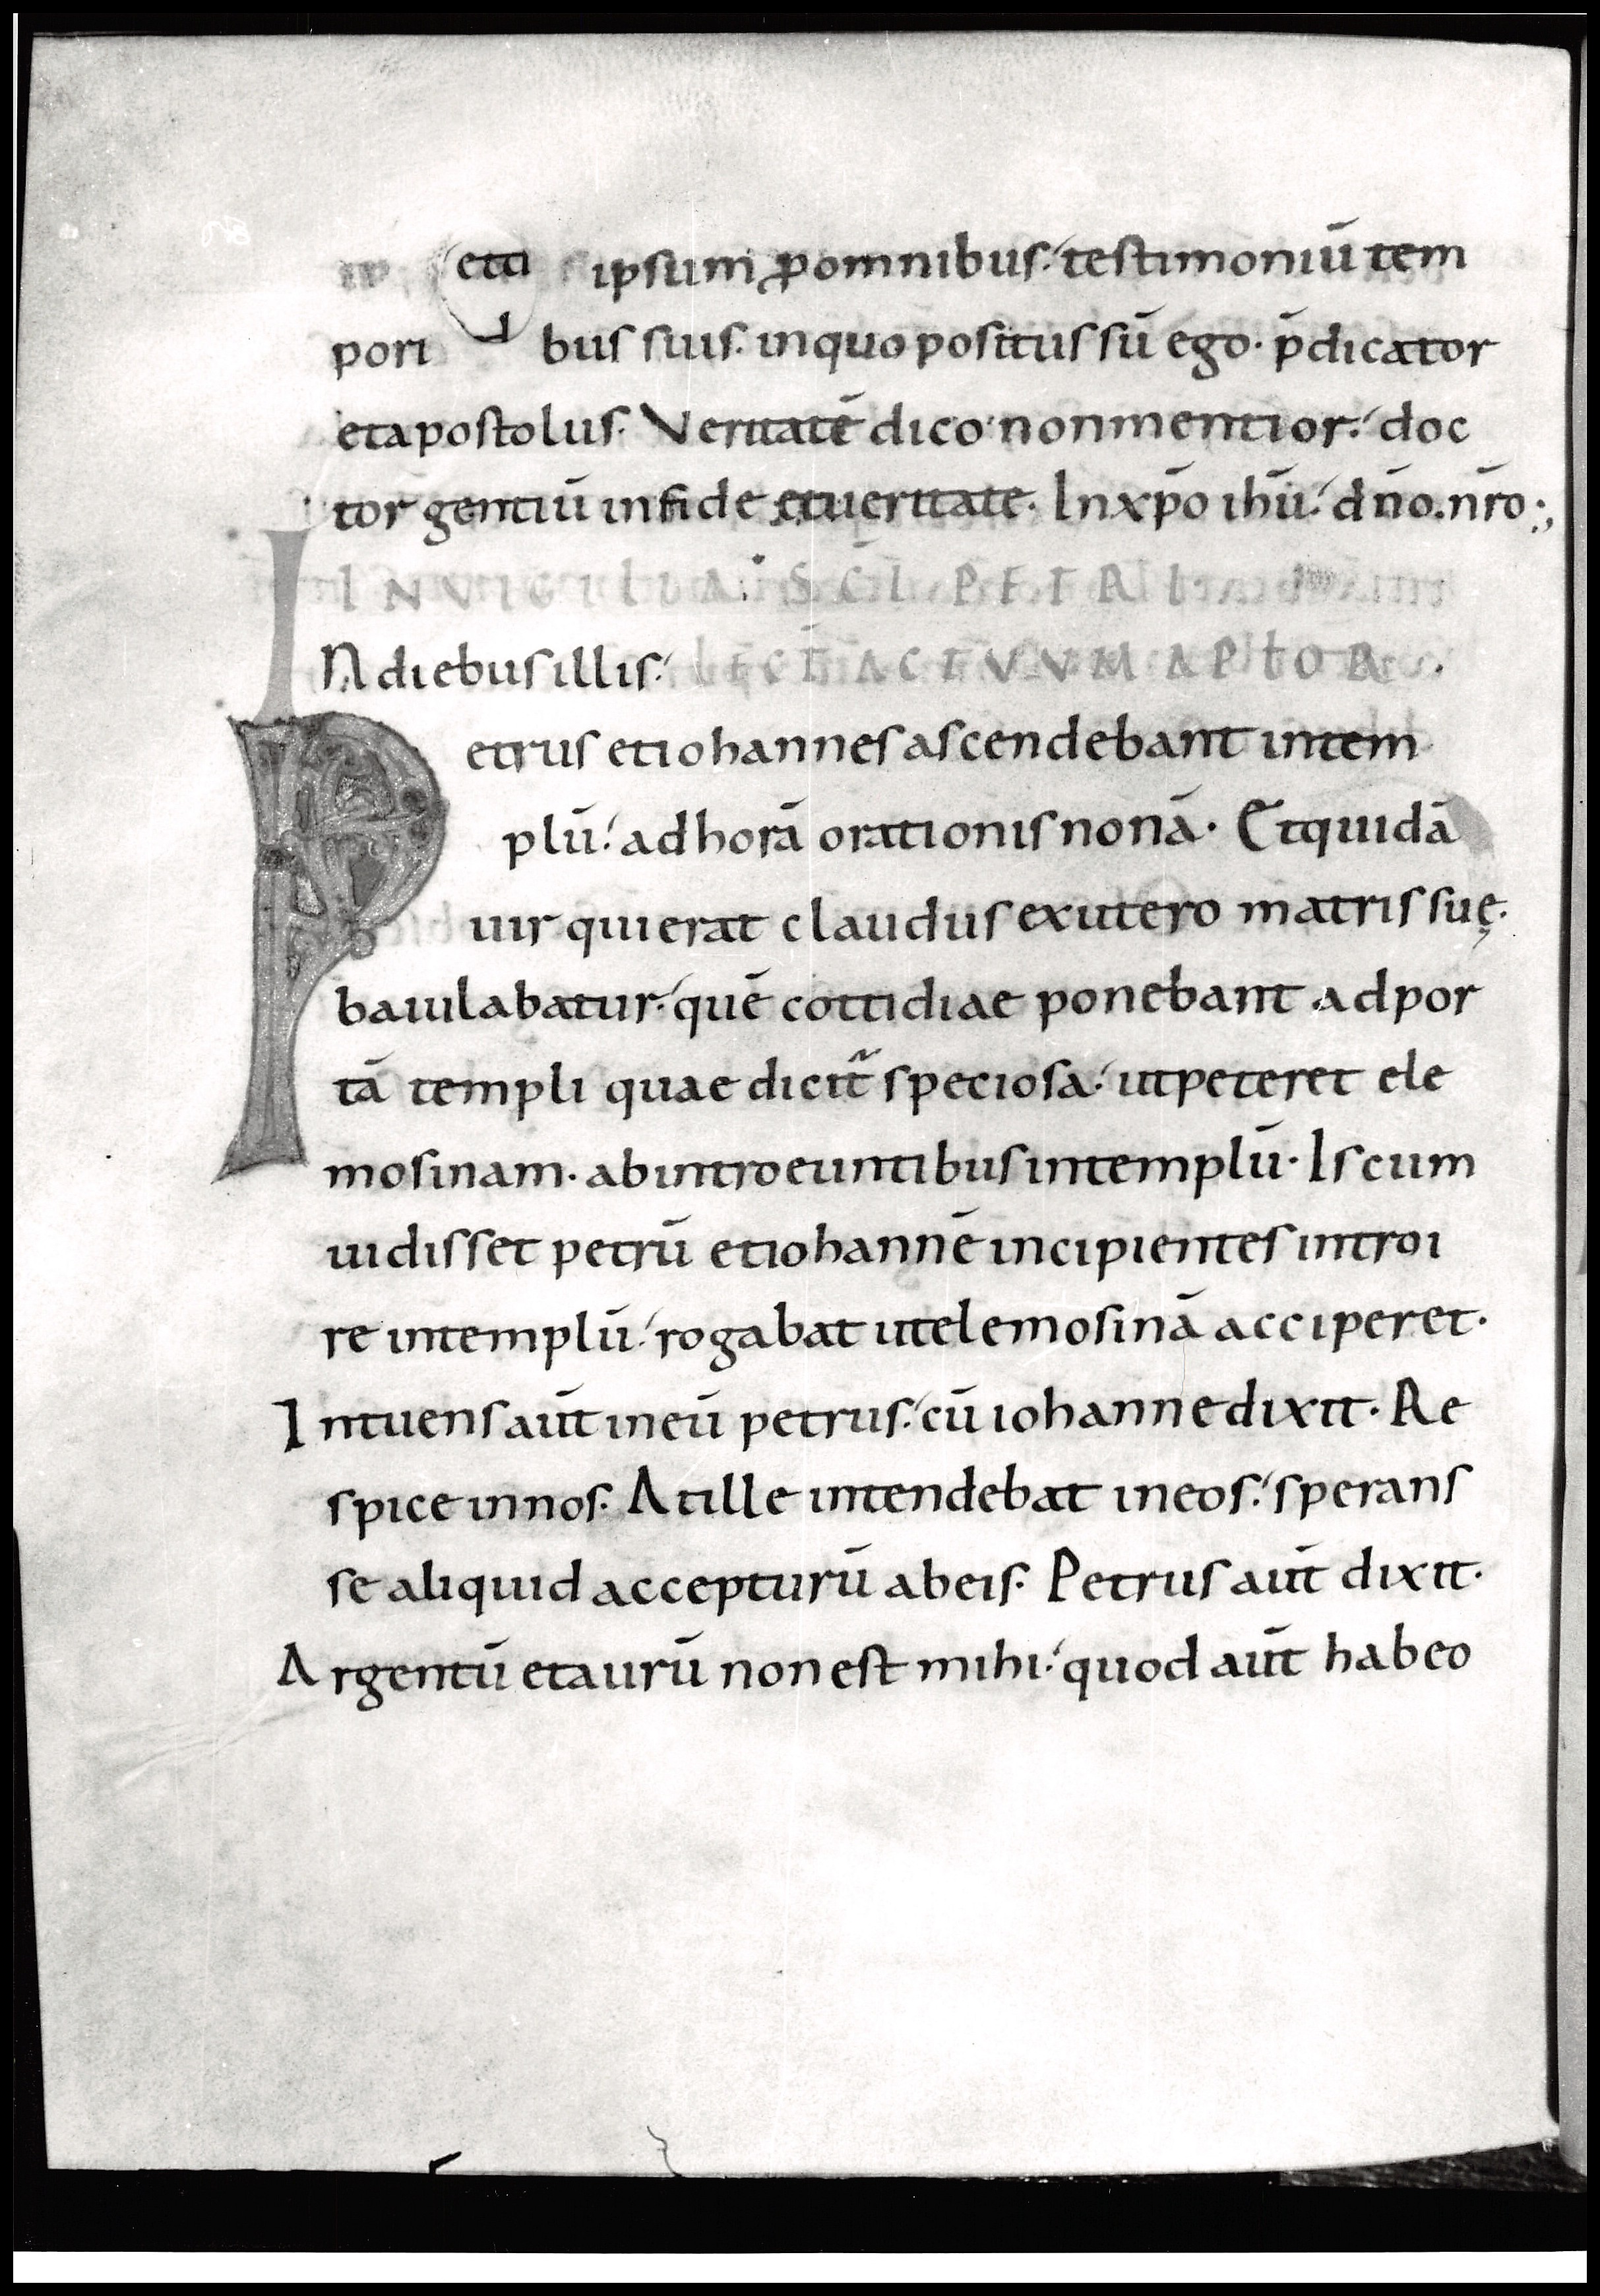 ipsum ꝓ omnibus. testimoniū tem
pori bus suis. in quo positus sū ego. p̄dicator
et apostolus. Veritatē dico non mentior. doc
tor gentiū in fide et ueritate. In xp̄o ihū. dn̄o. nr̄o.,
IN VIGILIA SC̄I PETRI
IN diebus illis. LECT̄ ACTVVM AP̄LOR
Petrus et iohannes ascendebant in tem
plū. ad horā orationis nonā. Et quidā
uir qui erat claudus ex utero matris suę.
baiulabatur. quē cottidiae ponebant ad por
tā templi quae dicit᷑ speciosa. ut peteret ele
mosinam. ab introeuntibus in templū. Is cum
uidisset petrū et iohannē incipientes introi
re in templū. rogabat ut elemosinā acciperet.
Intuens aūt in eū petrus. cū iohanne dixit. Re
spice in nos. At ille intendebat in eos. sperans
se aliquid accepturū ab eis. Petrus aūt dixit.
Argentū et aurū non est mihi. quod aūt habeo